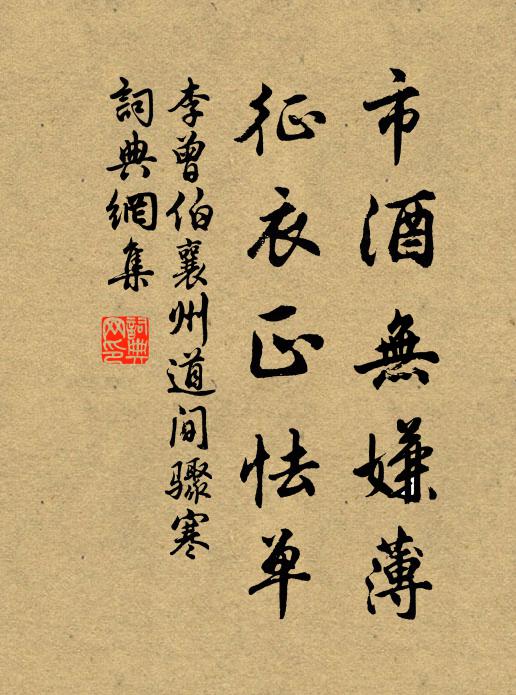 市酒無嫌薄
征衣正怯单
李曾伯襄州道间骤寒
詞典網集
詞典网印